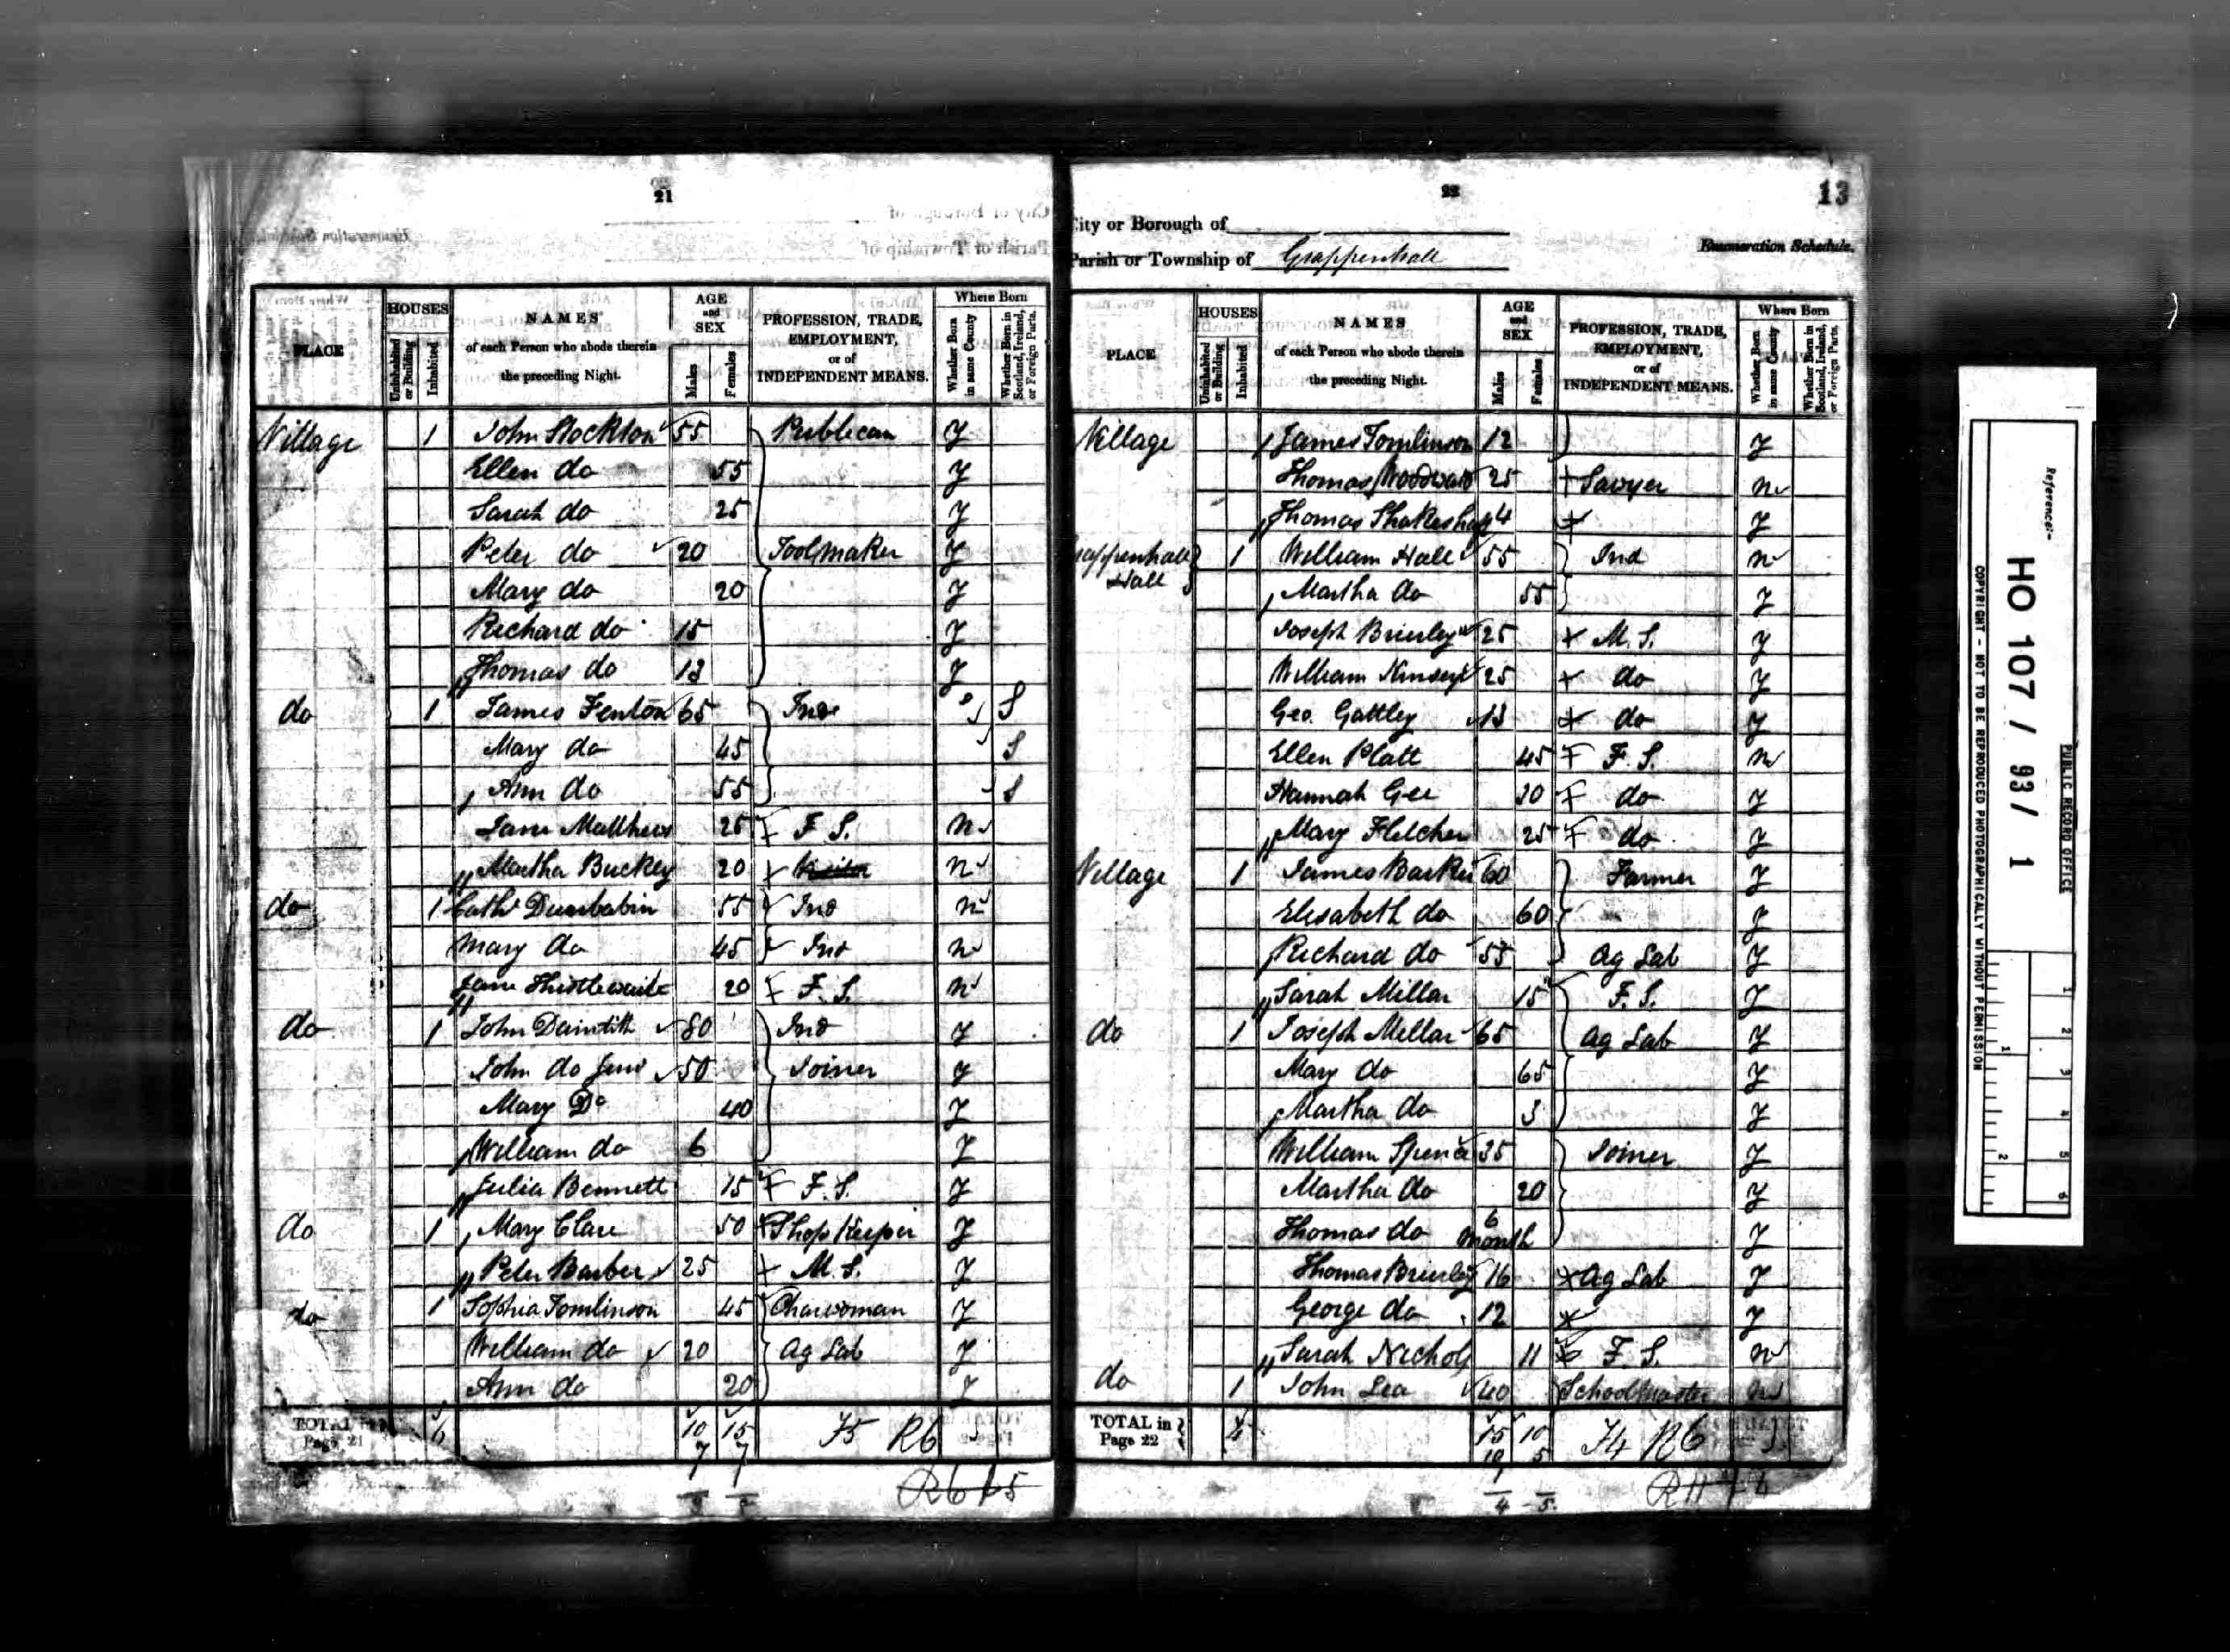 21
HOUSES
PLACE
Uninhabited or Building
Inhabited
NAMES of each Person who abode therein the preceding Night.
AGE and SEX
Males
Females
PROFESSION, TRADE, EMPLOYMENT, or of INDEPENDENT MEANS.
Where Born
Whether Born in same County
Whether Born in Scotland, Ireland, or Foreign Parts.
Village 1 John Stockton 55 Publican Y
Ellen do 55 Y
Sarah do 25 Y
Peter do 20 Toolmaker Y
Mary do 20 Y
Richard do 15 Y
Thomas do 13 Y
do 1 James Fenton 65 Ind S
Mary do 45 S
Ann do 55 S
Jane Matthews 25 F. S. N
Martha Buckley 20 N
do 1 Cath Dunbabin 55 Ind N
Mary do 45 Ind N
Jane Thistlewaite 20 F. S. N
do 1 John Daintith 80 Ind Y
John do Junr 50 Joiner Y
Mary Do 40 Y
William do 6 Y
Julia Bennett 15 F. S. Y
do 1 Mary Clare 50 Shop Keeper Y
Peter Barber 25 M. S. Y
do 1 Sophia Tomlinson 45 Charwoman Y
William do 20 Ag Lab Y
Ann do 20 Y
TOTAL in Page 21 6 10 15 F5 R6
7 7
22
13
City or Borough of
Parish or Township of Grappenhall
Enumeration Schedule.
PLACE
HOUSES
Uninhabited or Building
Inhabited
NAMES of each Person who abode therein the preceding Night.
AGE and SEX
Males
Females
PROFESSION, TRADE, EMPLOYMENT, or of INDEPENDENT MEANS.
Where Born
Whether Born in same County
Whether Born in Scotland, Ireland, or Foreign Parts.
Village James Tomlinson 12 Y
Thomas Woodward 25 Sawyer N
Thomas 14 Y
Grappenhall Hall 1 William Hall 55 Ind N
Martha do 55 Y
Joseph Brierley 25 M. S. Y
William Kinsey 25 do Y
Geo. Gattley 13 do Y
Ellen Platt 45 F. S. N
Hannah Gee 30 do Y
Mary Fletcher 25 do Y
Village 1 James Barker 60 Farmer Y
Elisabeth do 60 Y
Richard do 55 Ag Lab Y
Sarah Millar 15 F. S. Y
do 1 Joseph Millar 65 Ag Lab Y
Mary do 65 Y
Martha do 3 Y
William 35 Joiner Y
Martha do 20 Y
Thomas do 6 Month Y
Thomas Brierley 16 Ag Lab Y
George do 12 Y
Sarah Nichols 11 F. S. N
do 1 John Lea 40 Schoolmaster N
TOTAL in Page 22 4 15 10 F4 R6
10 5
4 5
Reference:-
HO 107 / 93 / 1
PUBLIC RECORD OFFICE
COPYRIGHT - NOT TO BE REPRODUCED PHOTOGRAPHICALLY WITHOUT PERMISSION
1
2
1
2
3
4
5
6